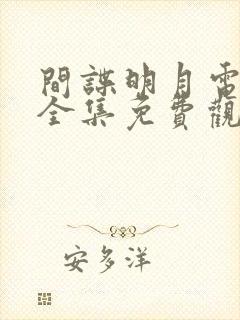 間諜明月電
全集免費觀
安多洋